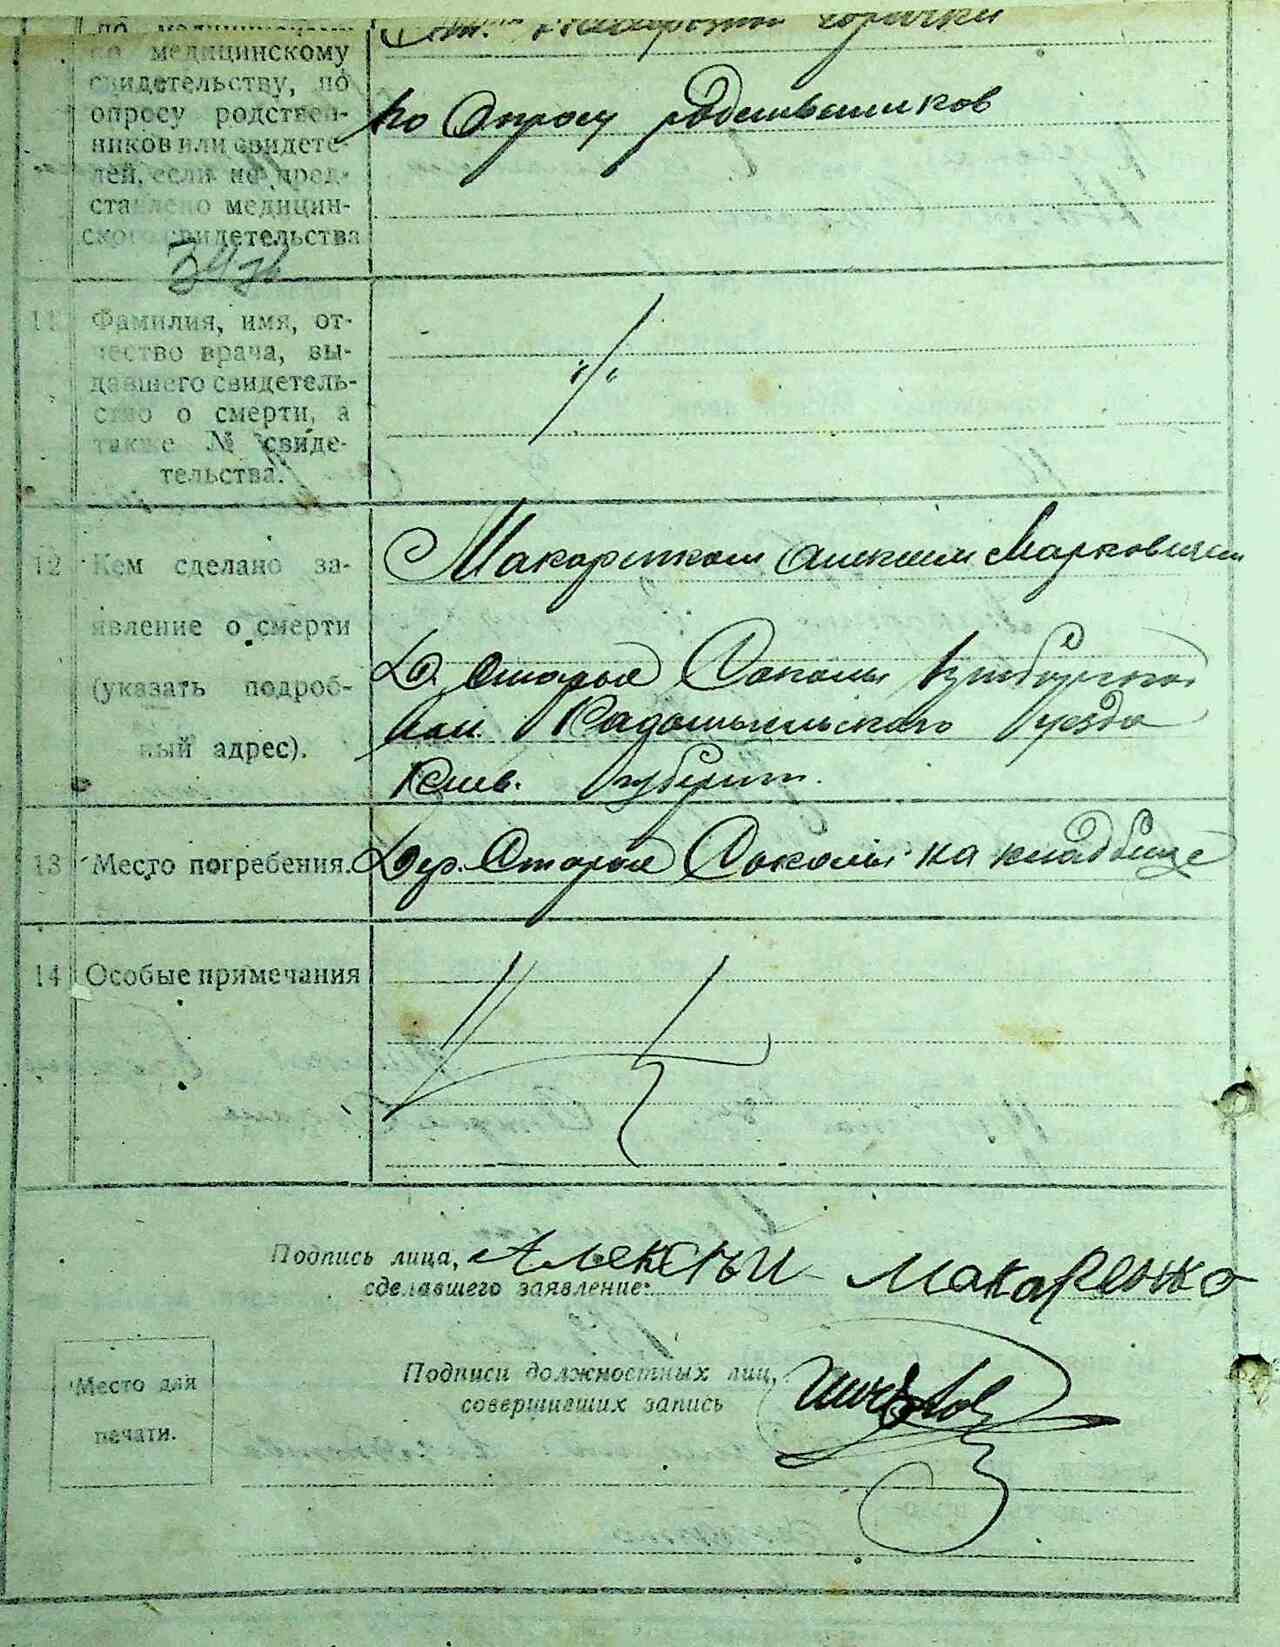 по медицинскому
свидетельству, по
опросу родствен-
ников или свидете-
лей, если не пред-
ставлено медицин-
ского свидетельства
горячки
по опросу родственников
11 Фамилия, имя, от-
чество врача, вы-
давшего свидетель-
ство о смерти, а
также № свиде-
тельства.
12 Кем сделано за-
явление о смерти
(указать подроб-
ный адрес).
Макаренком Алексеем Марковичем
Д. Старые Соколы
вол. Радомысльского уезда
Киев. губернии.
13 Место погребения. Дер. Старые Соколы на кладбище
14 Особые примечания
Подпись лица, Алексъи Макаренко
сделавшего заявление:
Подписи должностных лиц,
совершивших запись
Место для
печати.